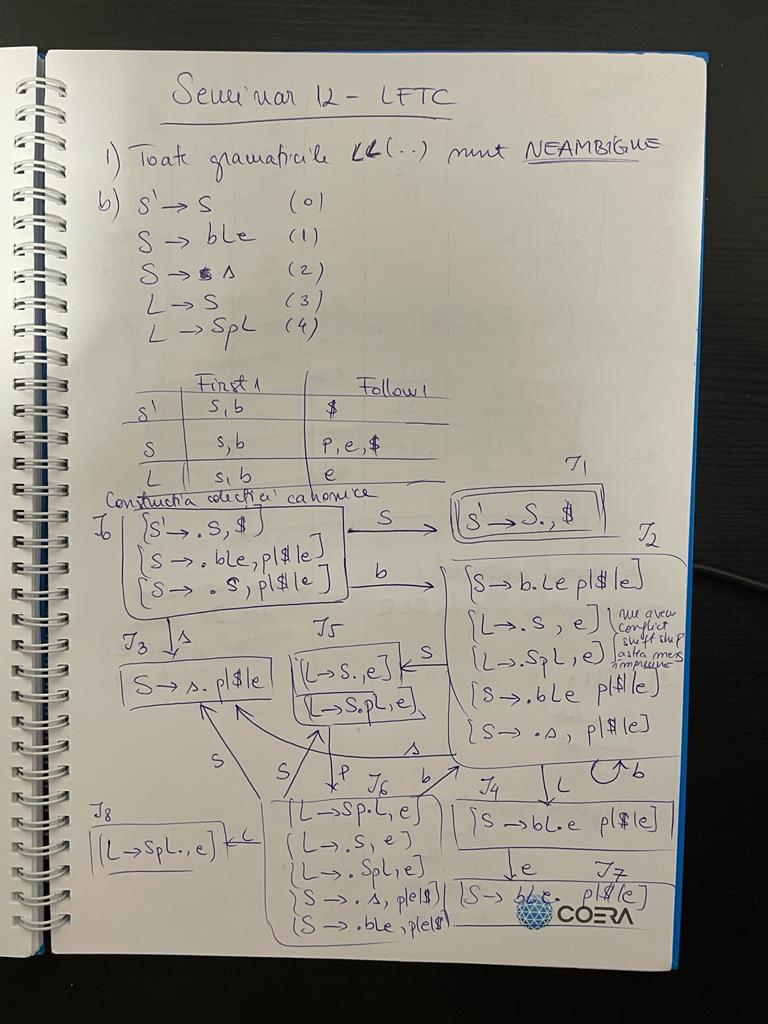 Seminar 12 - LFTC
1) Toate gramaticile LL(..) sunt NEAMBIGUE
b) S' → S (0)
S → bLe (1)
S → s (2)
L → S (3)
L → SpL (4)
First1 Follow1
S' s, b $
S s, b p, e, $
L s, b e
Constructia colecției canonice
I0
[S' → .S, $]
[S → .bLe, p|$|e]
[S → .s, p|$|e]
S
b
s
I1
S' → S., $
I2
[S → b.Le p|$|e]
[L → .S, e]
[L → .SpL, e]
[S → .bLe p|$|e]
[S → .s, p|$|e]
nu avem
conflict
shift ship
astra merg
impreuna
I3
S → s. p|$|e
I5
[L → S., e]
[L → S.pL, e]
S
s
S
S
p
b
L
b
I6
[L → Sp.L, e]
[L → .S, e]
[L → .SpL, e]
[S → .s, p|e|$]
[S → .ble, p|e|$]
I4
[S → bL.e p|$|e]
e
I7
[S → bLe. p|$|e]
I8
[L → SpL., e]
L
COERA